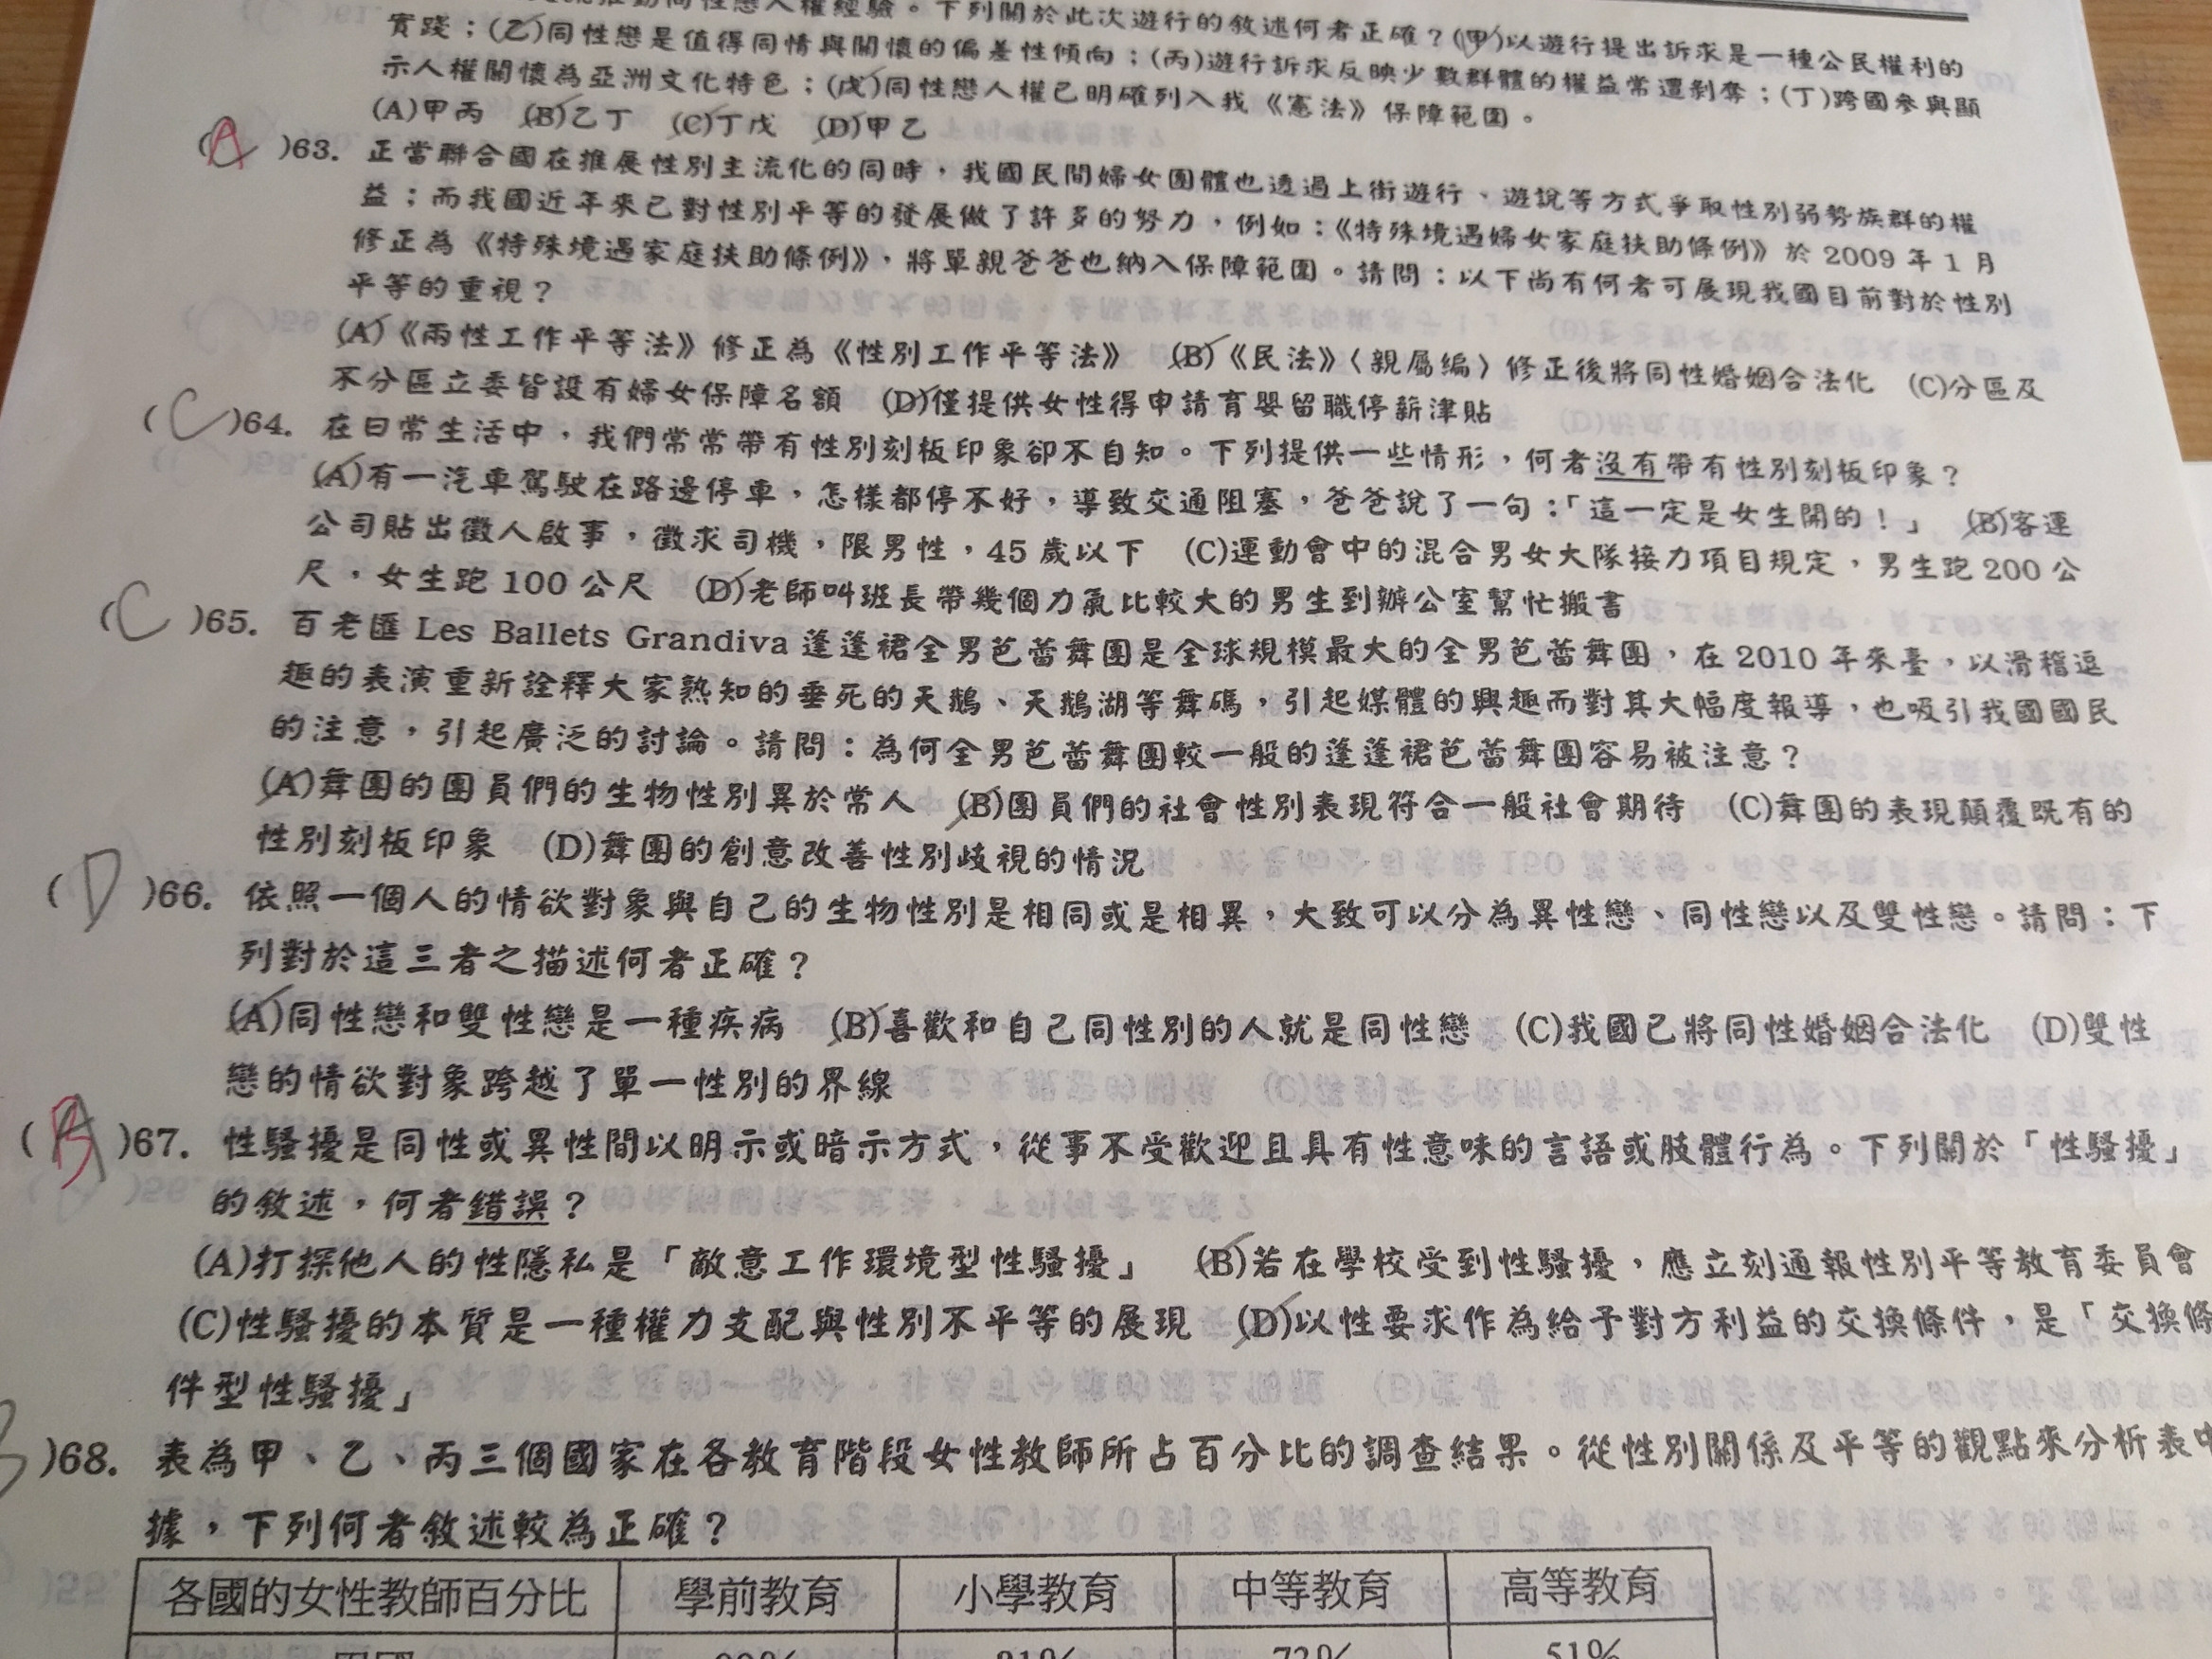 人權經驗。下列關於此次遊行的敘述何者正確？(甲)以遊行提出訴求是一種公民權利的
實踐；(乙)同性戀是值得同情與關懷的偏差性傾向；(丙)遊行訴求反映少數群體的權益常遭剝奪；(丁)跨國參與顯
示人權關懷為亞洲文化特色；(戊)同性戀人權已明確列入我《憲法》保障範圍。
(A)甲丙 (B)乙丁 (C)丁戊 (D)甲乙
(A)63. 正當聯合國在推展性別主流化的同時，我國民間婦女團體也透過上街遊行、遊說等方式爭取性別弱勢族群的權
益；而我國近年來已對性別平等的發展做了許多的努力，例如：《特殊境遇婦女家庭扶助條例》於 2009 年 1 月
修正為《特殊境遇家庭扶助條例》，將單親爸爸也納入保障範圍。請問：以下尚有何者可展現我國目前對於性別
平等的重視？
(A)《兩性工作平等法》修正為《性別工作平等法》 (B)《民法》〈親屬編〉修正後將同性婚姻合法化 (C)分區及
不分區立委皆設有婦女保障名額 (D)僅提供女性得申請育嬰留職停薪津貼
(C)64. 在日常生活中，我們常常帶有性別刻板印象卻不自知。下列提供一些情形，何者沒有帶有性別刻板印象？
(A)有一汽車駕駛在路邊停車，怎樣都停不好，導致交通阻塞，爸爸說了一句：「這一定是女生開的！」 (B)客運
公司貼出徵人啟事，徵求司機，限男性，45 歲以下 (C)運動會中的混合男女大隊接力項目規定，男生跑 200 公
尺，女生跑 100 公尺 (D)老師叫班長帶幾個力氣比較大的男生到辦公室幫忙搬書
(C)65. 百老匯 Les Ballets Grandiva 蓬蓬裙全男芭蕾舞團是全球規模最大的全男芭蕾舞團，在 2010 年來臺，以滑稽逗
趣的表演重新詮釋大家熟知的垂死的天鵝、天鵝湖等舞碼，引起媒體的興趣而對其大幅度報導，也吸引我國國民
的注意，引起廣泛的討論。請問：為何全男芭蕾舞團較一般的蓬蓬裙芭蕾舞團容易被注意？
(A)舞團的團員們的生物性別異於常人 (B)團員們的社會性別表現符合一般社會期待 (C)舞團的表現顛覆既有的
性別刻板印象 (D)舞團的創意改善性別歧視的情況
(D)66. 依照一個人的情欲對象與自己的生物性別是相同或是相異，大致可以分為異性戀、同性戀以及雙性戀。請問：下
列對於這三者之描述何者正確？
(A)同性戀和雙性戀是一種疾病 (B)喜歡和自己同性別的人就是同性戀 (C)我國已將同性婚姻合法化 (D)雙性
戀的情欲對象跨越了單一性別的界線
(B)67. 性騷擾是同性或異性間以明示或暗示方式，從事不受歡迎且具有性意味的言語或肢體行為。下列關於「性騷擾」
的敘述，何者錯誤？
(A)打探他人的性隱私是「敵意工作環境型性騷擾」 (B)若在學校受到性騷擾，應立刻通報性別平等教育委員會
(C)性騷擾的本質是一種權力支配與性別不平等的展現 (D)以性要求作為給予對方利益的交換條件，是「交換條
件型性騷擾」
)68. 表為甲、乙、丙三個國家在各教育階段女性教師所占百分比的調查結果。從性別關係及平等的觀點來分析表中
據，下列何者敘述較為正確？
各國的女性教師百分比 學前教育 小學教育 中等教育 高等教育
51%